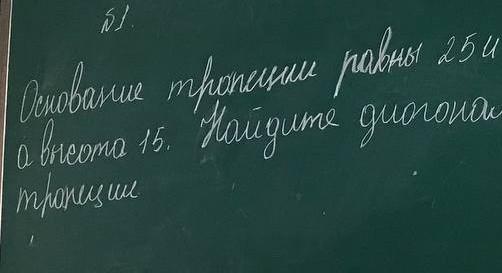 №1.
Основание тропеции равны 25 и
а высота 15. Найдите диогонал
тропеции